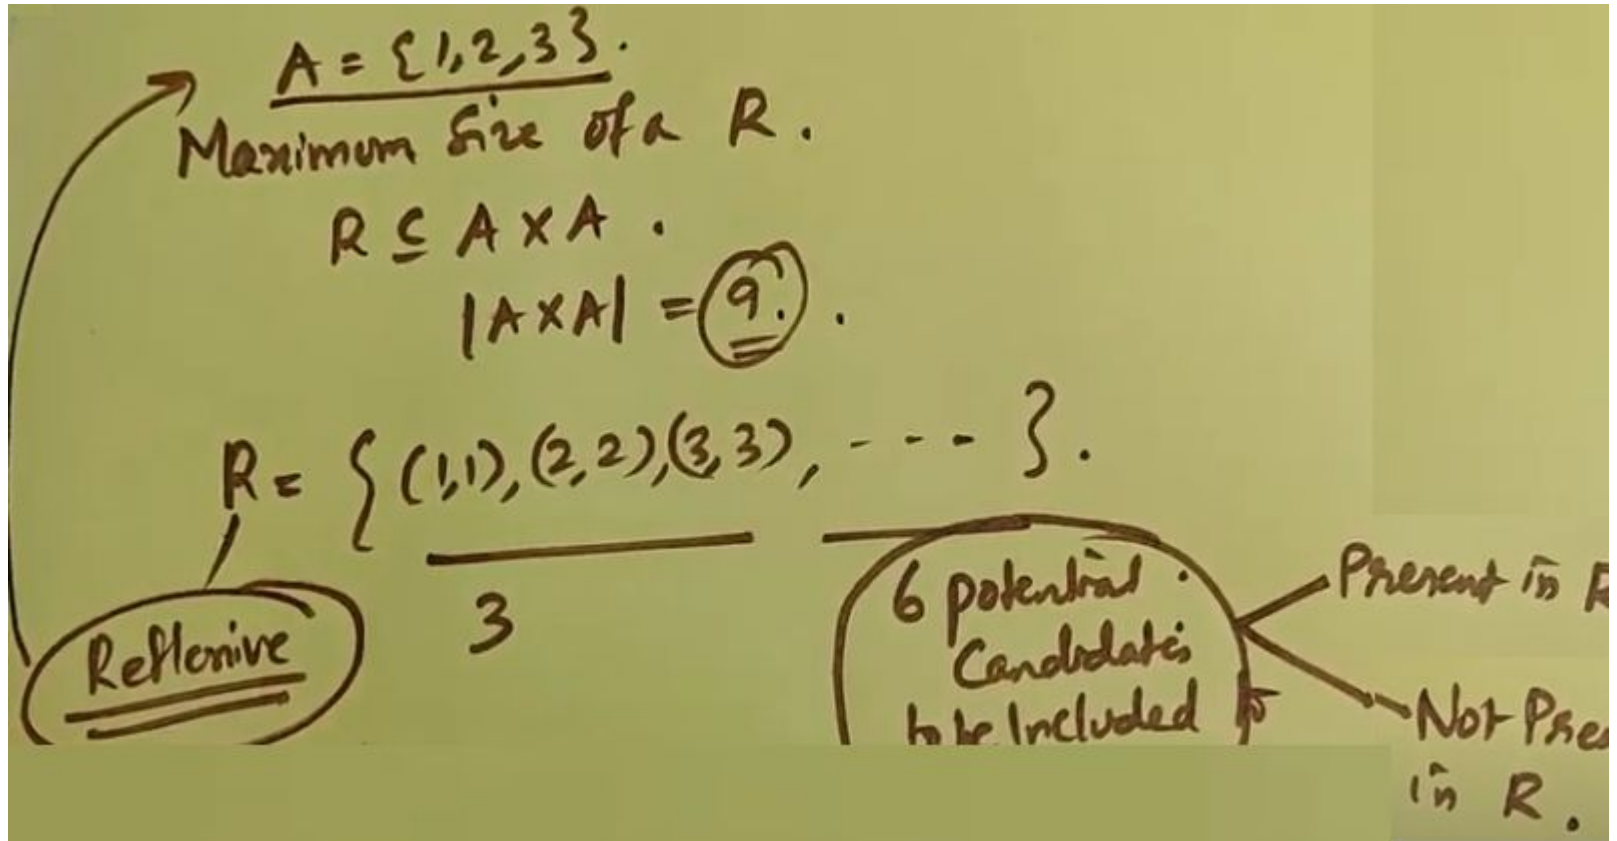 A = {1,2,3}.
Maximum Size of a R.
R ⊆ A X A .
|A X A| = 9. .
R = { (1,1), (2,2), (3,3), - - - - }.
Reflexive
3
6 potential .
Candidates
to be Included
Present in R
Not Pres
in R .